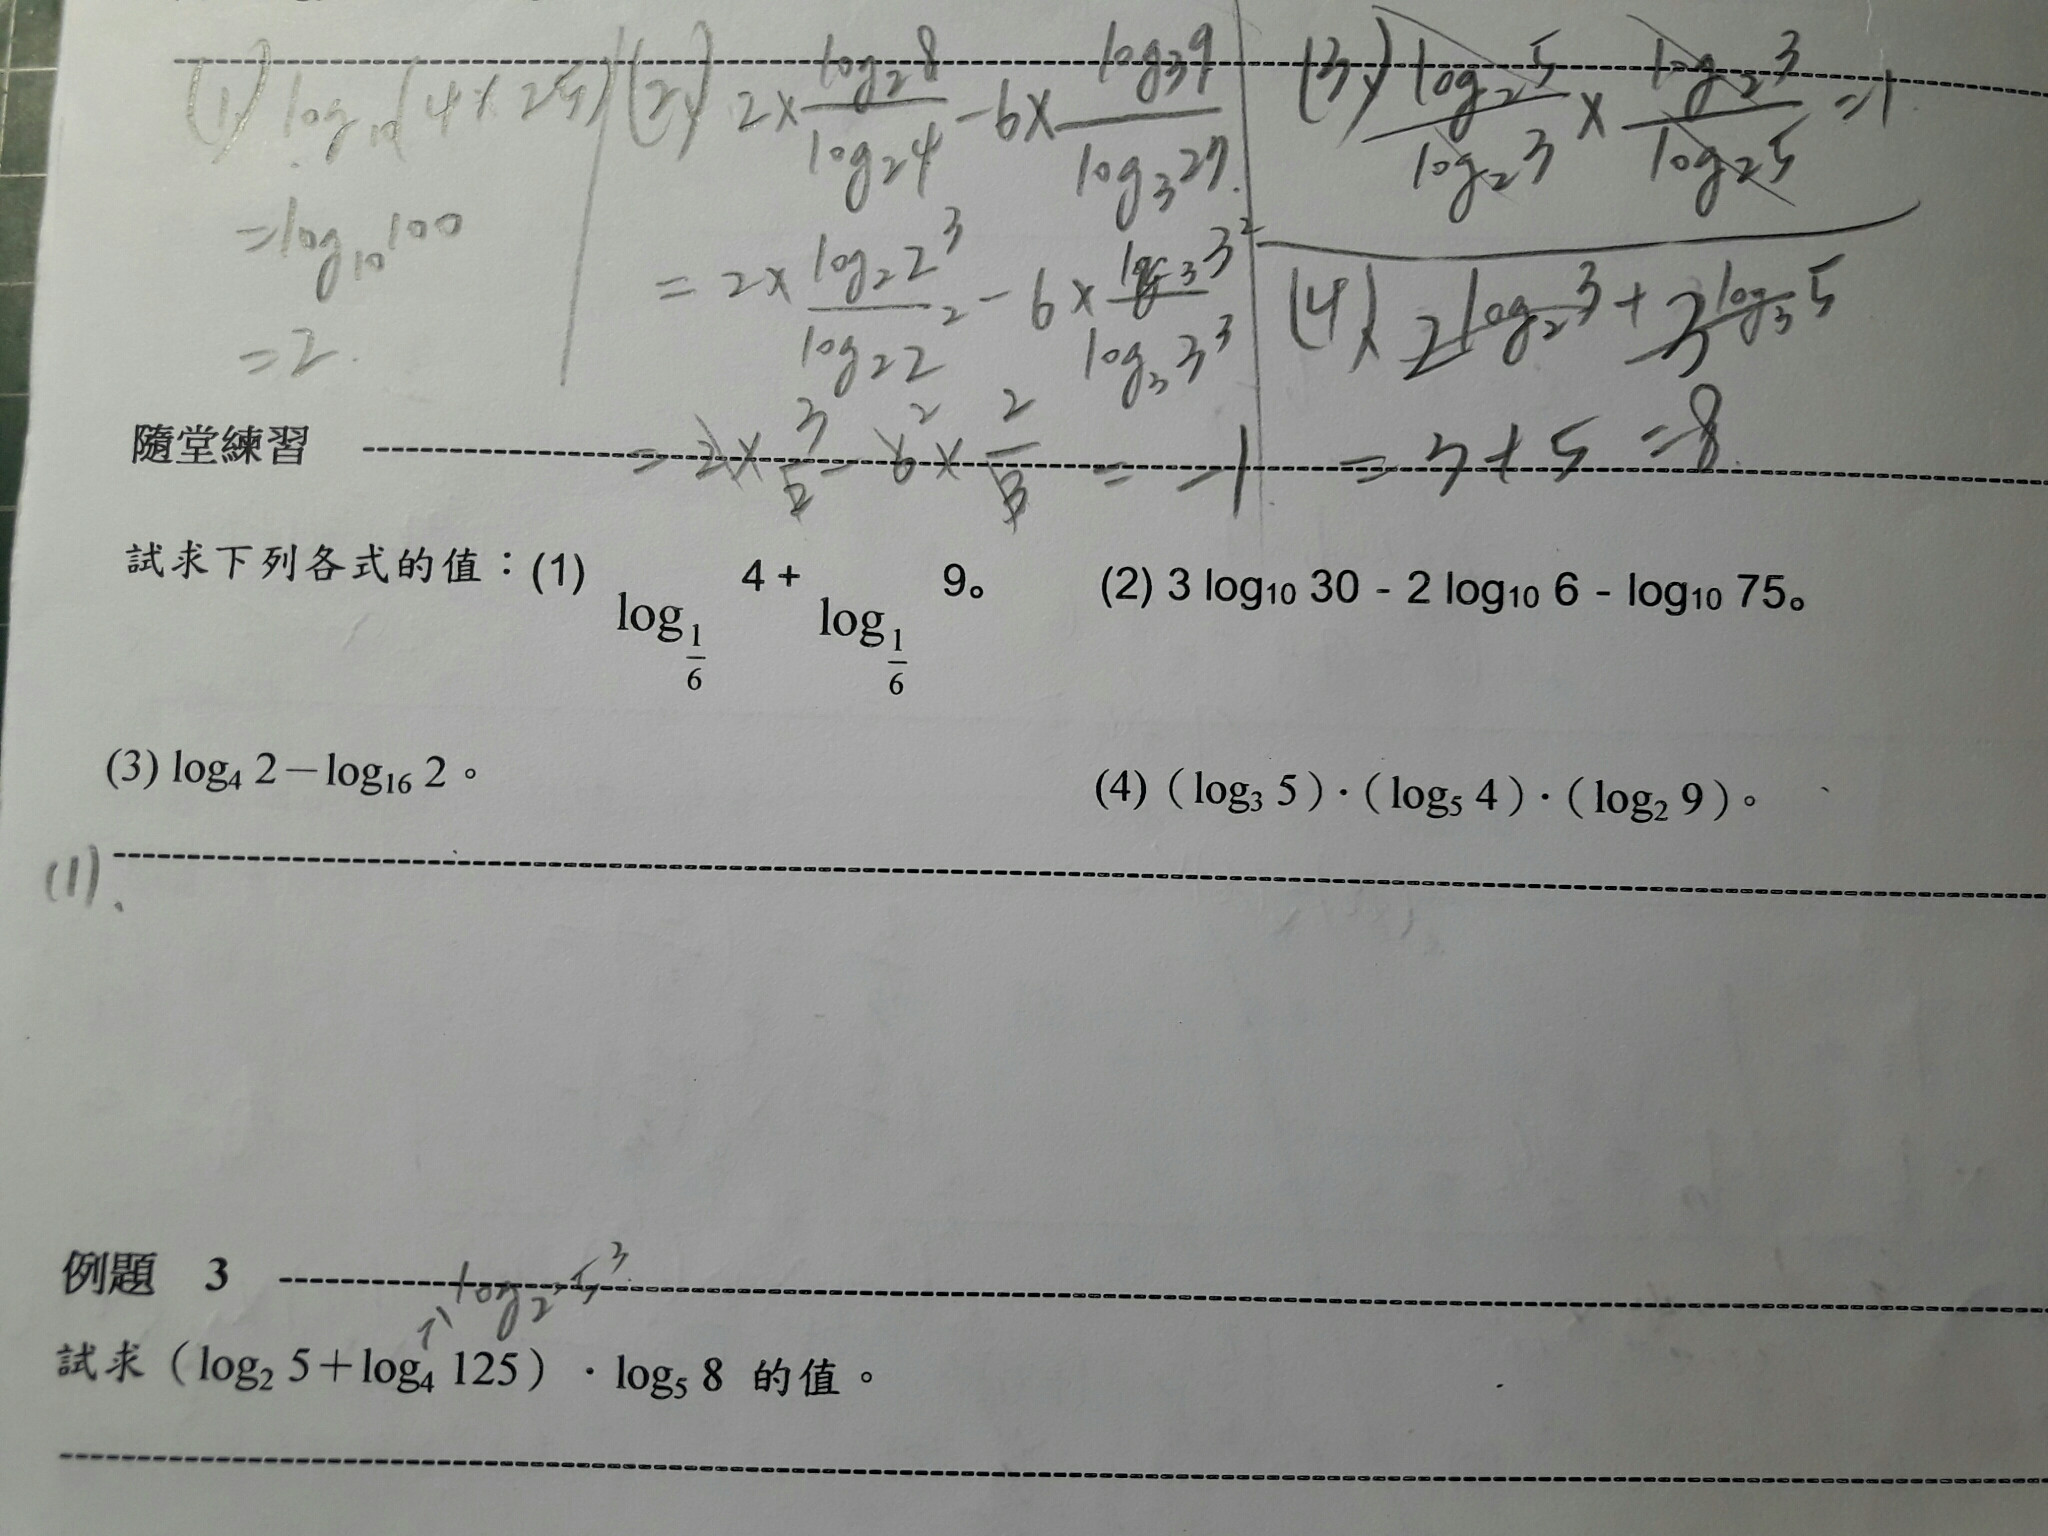 (1) log₁₀(4×25)
=log₁₀100
=2.
(2) 2×log₂8/log₂4-6×log₃9/log₃27.
=2×log₂2³/log₂2²-6×log₃3²/log₃3³
=2×3/2-6²×2/3=-1.
(3) log₂5/log₂3×log₂3/log₂5=1.
(4) 2^log₂3+3^log₃5
=3+5=8.
隨堂練習
試求下列各式的值：(1) log_{1/6} 4+log_{1/6} 9。 (2) 3 log₁₀ 30 - 2 log₁₀ 6 - log₁₀ 75。
(3) log₄ 2－log₁₆ 2。 (4)（log₃ 5）·（log₅ 4）·（log₂ 9）。
(1).
例題 3
log₂² 5³
試求（log₂ 5＋log₄ 125）· log₅ 8 的值。